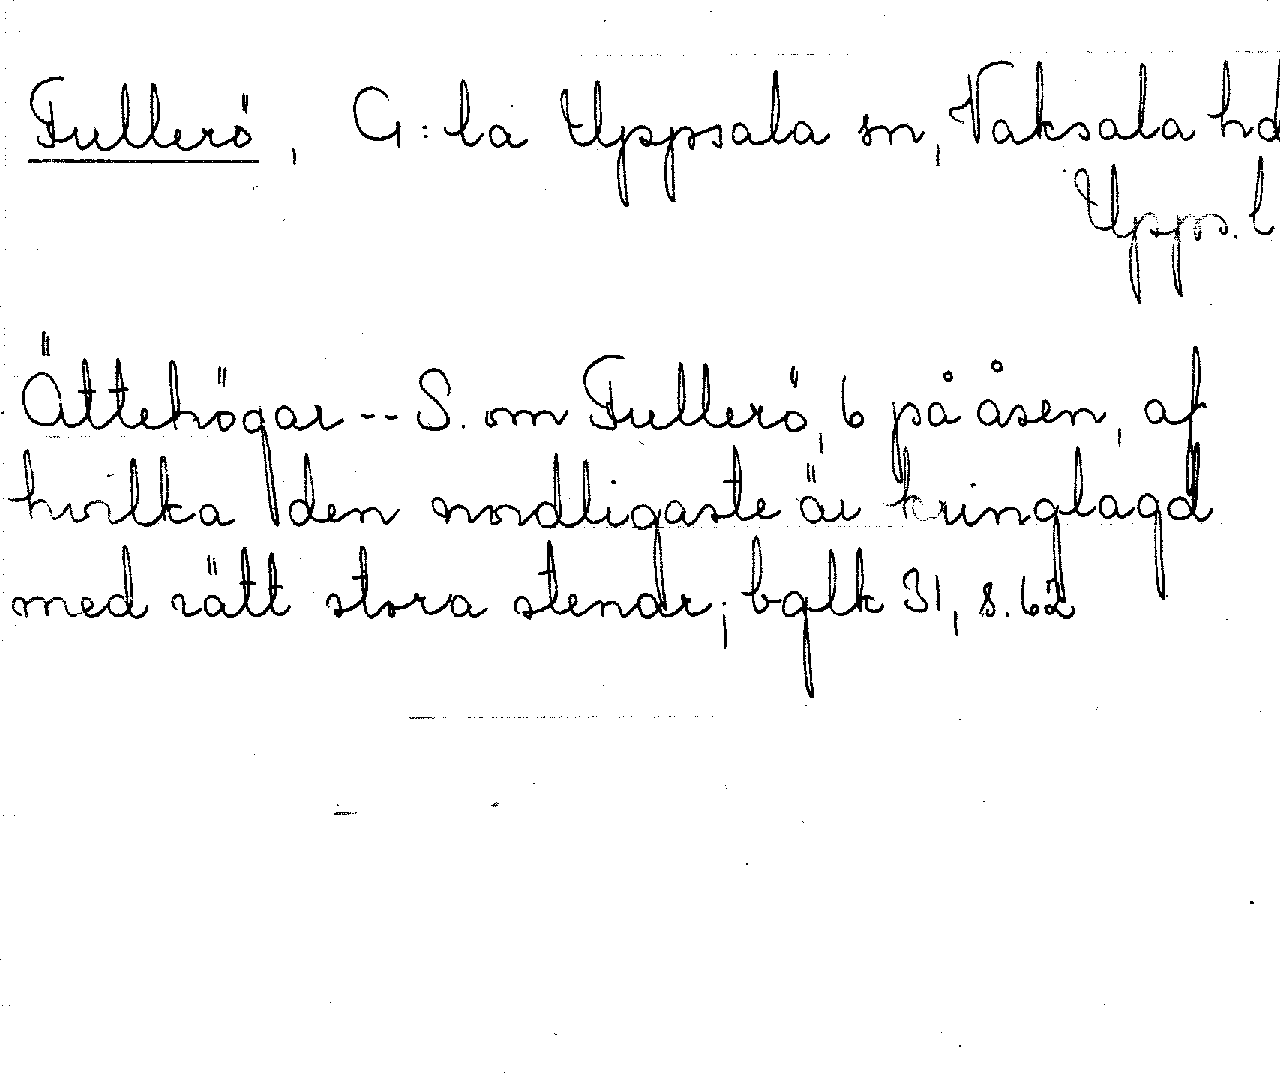 Fullerö, G:la Uppsala sn, Vaksala hd
Upps. l
Ättehögar -- S. om Fullerö, 6 på åsen, af
hvilka den nordligaste är kringlagd
med rätt stora stenar; bglk 31, s. 62